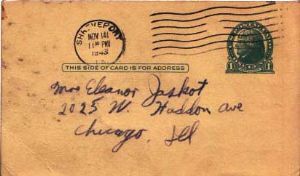 SHREVEPORT
NOV 14
PM
1943
THIS SIDE OF CARD IS FOR ADDRESS
Mrs Eleanor Jaskot
2025 W. Haddon Ave
Chicago, Ill